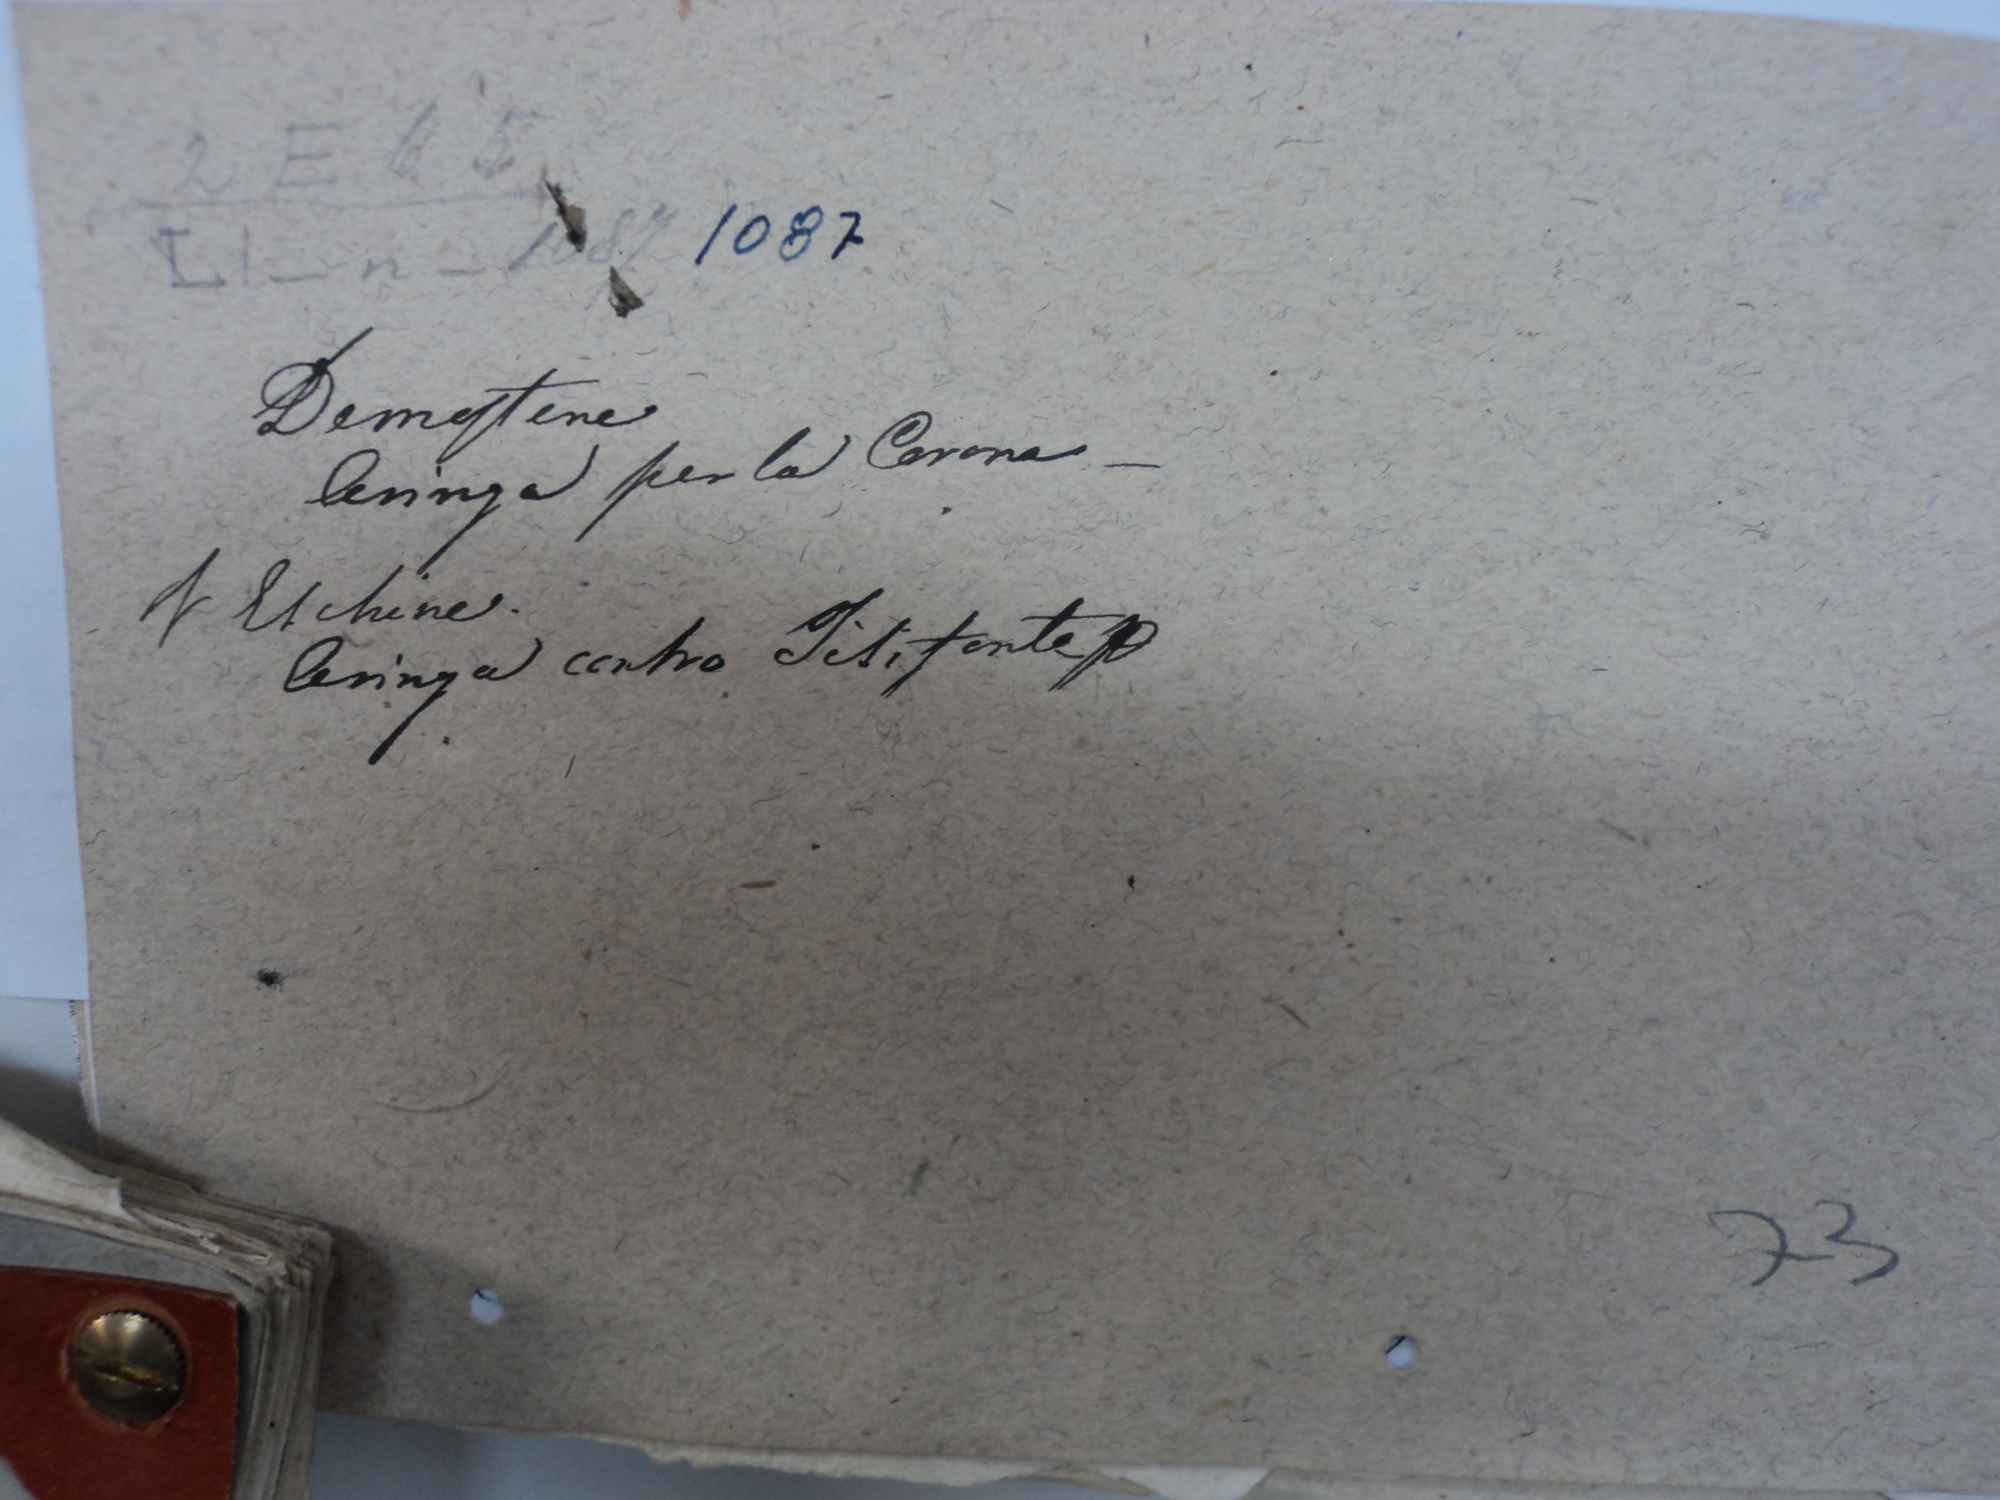 2 E 6 5
L1 - n - 1087 1087
Demostene
Aringa per la Corona -
Eschine.
Aringa contro Tesifonte
73